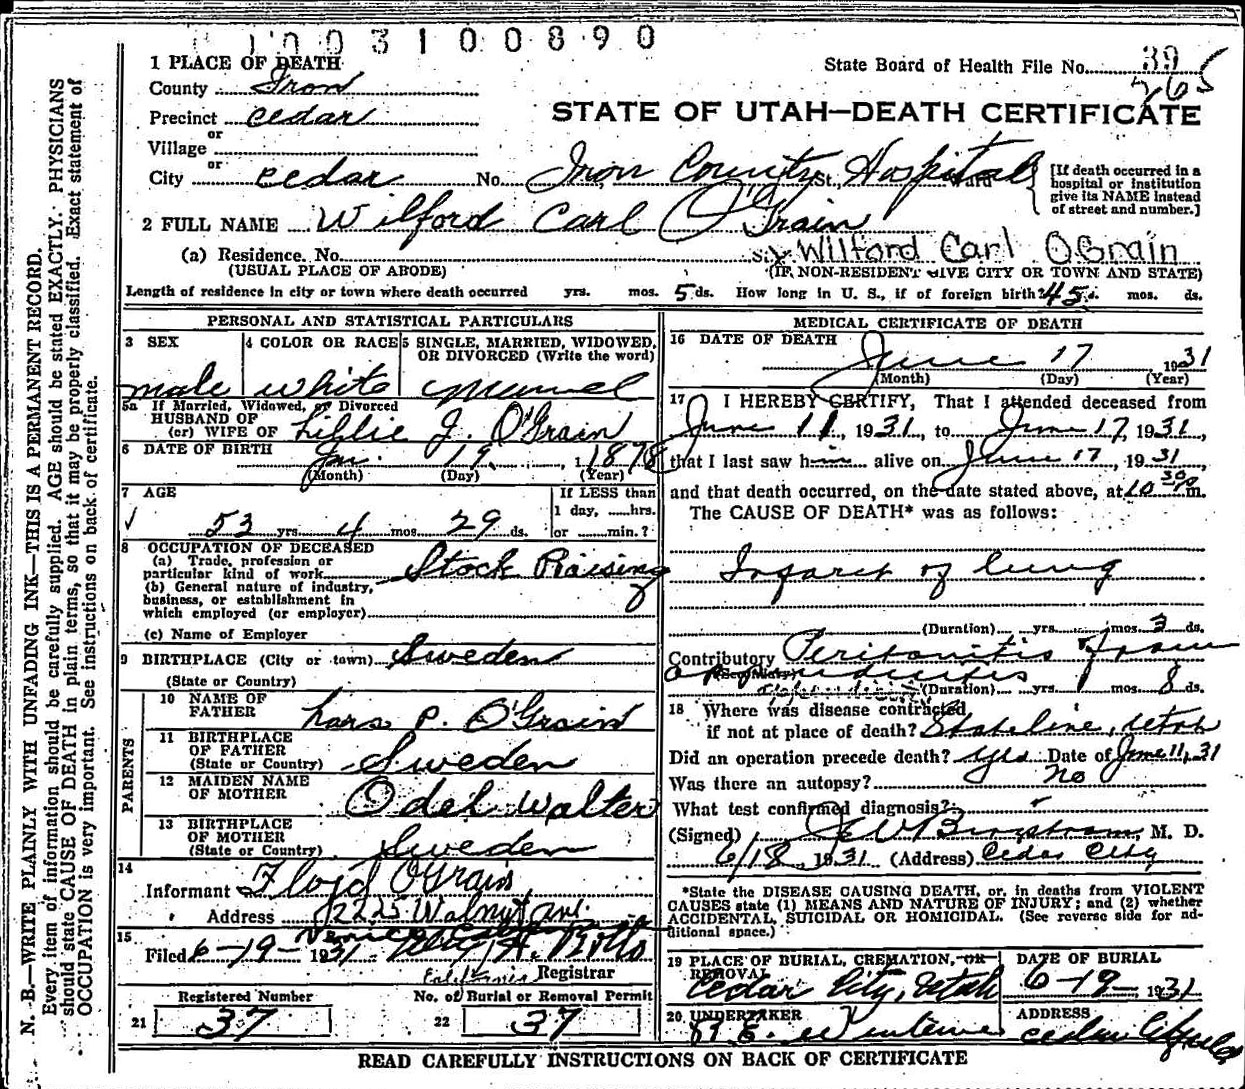 1003100890
1 PLACE OF DEATH
State Board of Health File No. 39
265
County Iron
STATE OF UTAH—DEATH CERTIFICATE
Precinct Cedar
or
Village
or
City Cedar No. Iron County St., Hospital Ward
[If death occurred in a hospital or institution give its NAME instead of street and number.]
2 FULL NAME Wilford Carl O'Grain
(a) Residence. No. St. Wilford Carl OGrain
(USUAL PLACE OF ABODE) (IF NON-RESIDENT GIVE CITY OR TOWN AND STATE)
Length of residence in city or town where death occurred yrs. mos. 5 ds. How long in U. S., if of foreign birth? 45 mos. ds.
PERSONAL AND STATISTICAL PARTICULARS
3 SEX 4 COLOR OR RACE 5 SINGLE, MARRIED, WIDOWED, OR DIVORCED (Write the word)
male white
5a If Married, Widowed, or Divorced
HUSBAND OF
(or) WIFE OF Lillie J. O'Grain
6 DATE OF BIRTH Jan. 19, 1878
(Month) (Day) (Year)
7 AGE If LESS than
1 day, ......hrs.
53 yrs. 4 mos. 29 ds. or ......min.?
8 OCCUPATION OF DECEASED
(a) Trade, profession or
particular kind of work Stock Raising
(b) General nature of industry,
business, or establishment in
which employed (or employer)
(c) Name of Employer
9 BIRTHPLACE (City or town) Sweden
(State or Country)
PARENTS
10 NAME OF
FATHER Lars P. O'Grain
11 BIRTHPLACE
OF FATHER
(State or Country) Sweden
12 MAIDEN NAME
OF MOTHER Odel Walter
13 BIRTHPLACE
OF MOTHER
(State or Country) Sweden
14
Informant Floyd O'Grain
Address 2225 Walnut Av.
Venice California
15
Filed 6-19-1931
California Registrar
Registered Number No. of Burial or Removal Permit
21 37 22 37
MEDICAL CERTIFICATE OF DEATH
16 DATE OF DEATH June 17 1931
(Month) (Day) (Year)
17 I HEREBY CERTIFY, That I attended deceased from
June 11, 1931, to June 17, 1931,
that I last saw him alive on June 17, 1931
and that death occurred, on the date stated above, at 10 30 P m.
The CAUSE OF DEATH* was as follows:
Infarct of lung
(Duration) yrs. mos. 3 ds.
Contributory Peritonitis from
(Secondary) appendicitis
(Duration) yrs. mos. 8 ds.
18 Where was disease contracted
if not at place of death? Stateline, Utah
Did an operation precede death? Yes Date of June 11, 31
Was there an autopsy? no
What test confirmed diagnosis?
(Signed) M. D.
6/18 1931 (Address) Cedar City
*State the DISEASE CAUSING DEATH, or, in deaths from VIOLENT
CAUSES state (1) MEANS AND NATURE OF INJURY; and (2) whether
ACCIDENTAL, SUICIDAL OR HOMICIDAL. (See reverse side for ad-
ditional space.)
19 PLACE OF BURIAL, CREMATION, OR REMOVAL DATE OF BURIAL
Cedar City, Utah 6-19-1931
20 UNDERTAKER ADDRESS
Cedar City
READ CAREFULLY INSTRUCTIONS ON BACK OF CERTIFICATE
N. B.—WRITE PLAINLY WITH UNFADING INK—THIS IS A PERMANENT RECORD.
Every item of information should be carefully supplied. AGE should be stated EXACTLY. PHYSICIANS
should state CAUSE OF DEATH in plain terms, so that it may be properly classified. Exact statement of
OCCUPATION is very important. See instructions on back of certificate.